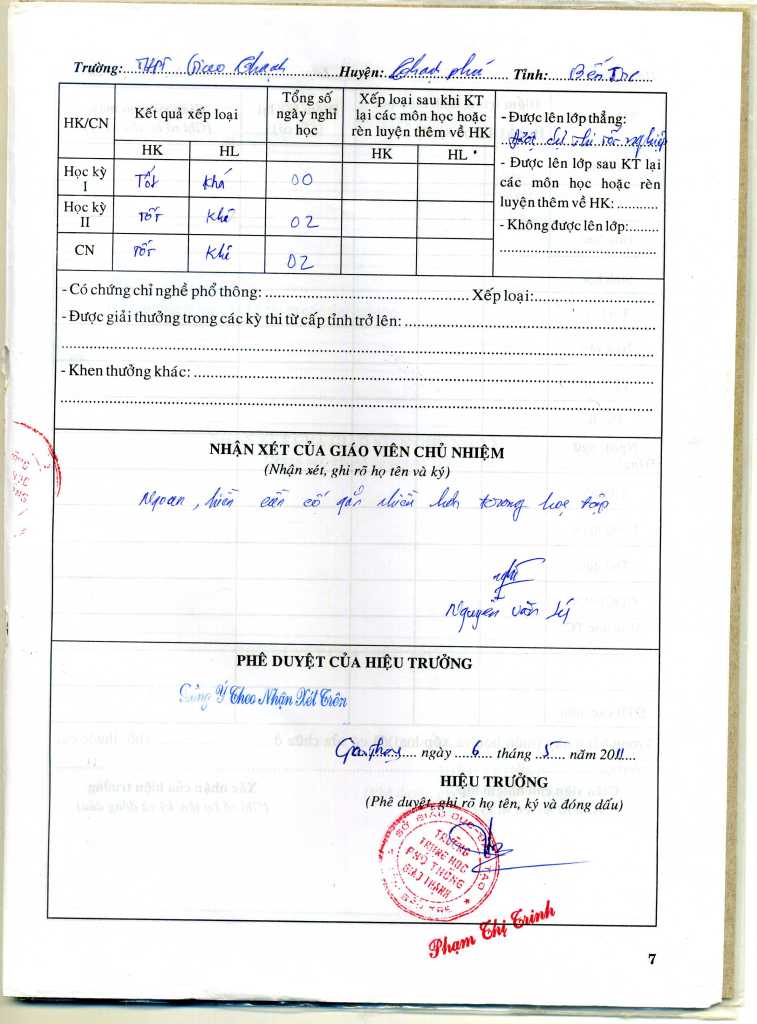 Trường: THPT Giao Thạnh Huyện: Thạnh phú Tỉnh: Bến Tre
HK/CN Kết quả xếp loại Tổng số ngày nghỉ học Xếp loại sau khi KT lại các môn học hoặc rèn luyện thêm về HK
HK HL HK HL
Học kỳ I Tốt Khá 00
Học kỳ II Tốt Khá 02
CN Tốt Khá 02
- Được lên lớp thẳng:
được dự thi tốt nghiệp
- Được lên lớp sau KT lại
các môn học hoặc rèn
luyện thêm về HK: ............
- Không được lên lớp:........
- Có chứng chỉ nghề phổ thông: ........ Xếp loại:........
- Được giải thưởng trong các kỳ thi từ cấp tỉnh trở lên: ........
- Khen thưởng khác: ........
NHẬN XÉT CỦA GIÁO VIÊN CHỦ NHIỆM
(Nhận xét, ghi rõ họ tên và ký)
Ngoan, hiền cần cố gắn nhiều hơn trong học tập
Nguyễn Văn Lý
PHÊ DUYỆT CỦA HIỆU TRƯỞNG
Đồng Ý Theo Nhận Xét Trên
Giao Thạnh ngày 6 tháng 5 năm 2011
HIỆU TRƯỞNG
(Phê duyệt, ghi rõ họ tên, ký và đóng dấu)
SỞ GIÁO DỤC-ĐÀO TẠO
TRƯỜNG
TRUNG HỌC
PHỔ THÔNG
GIAO THẠNH
BẾN TRE
Phạm Thị Trinh
7